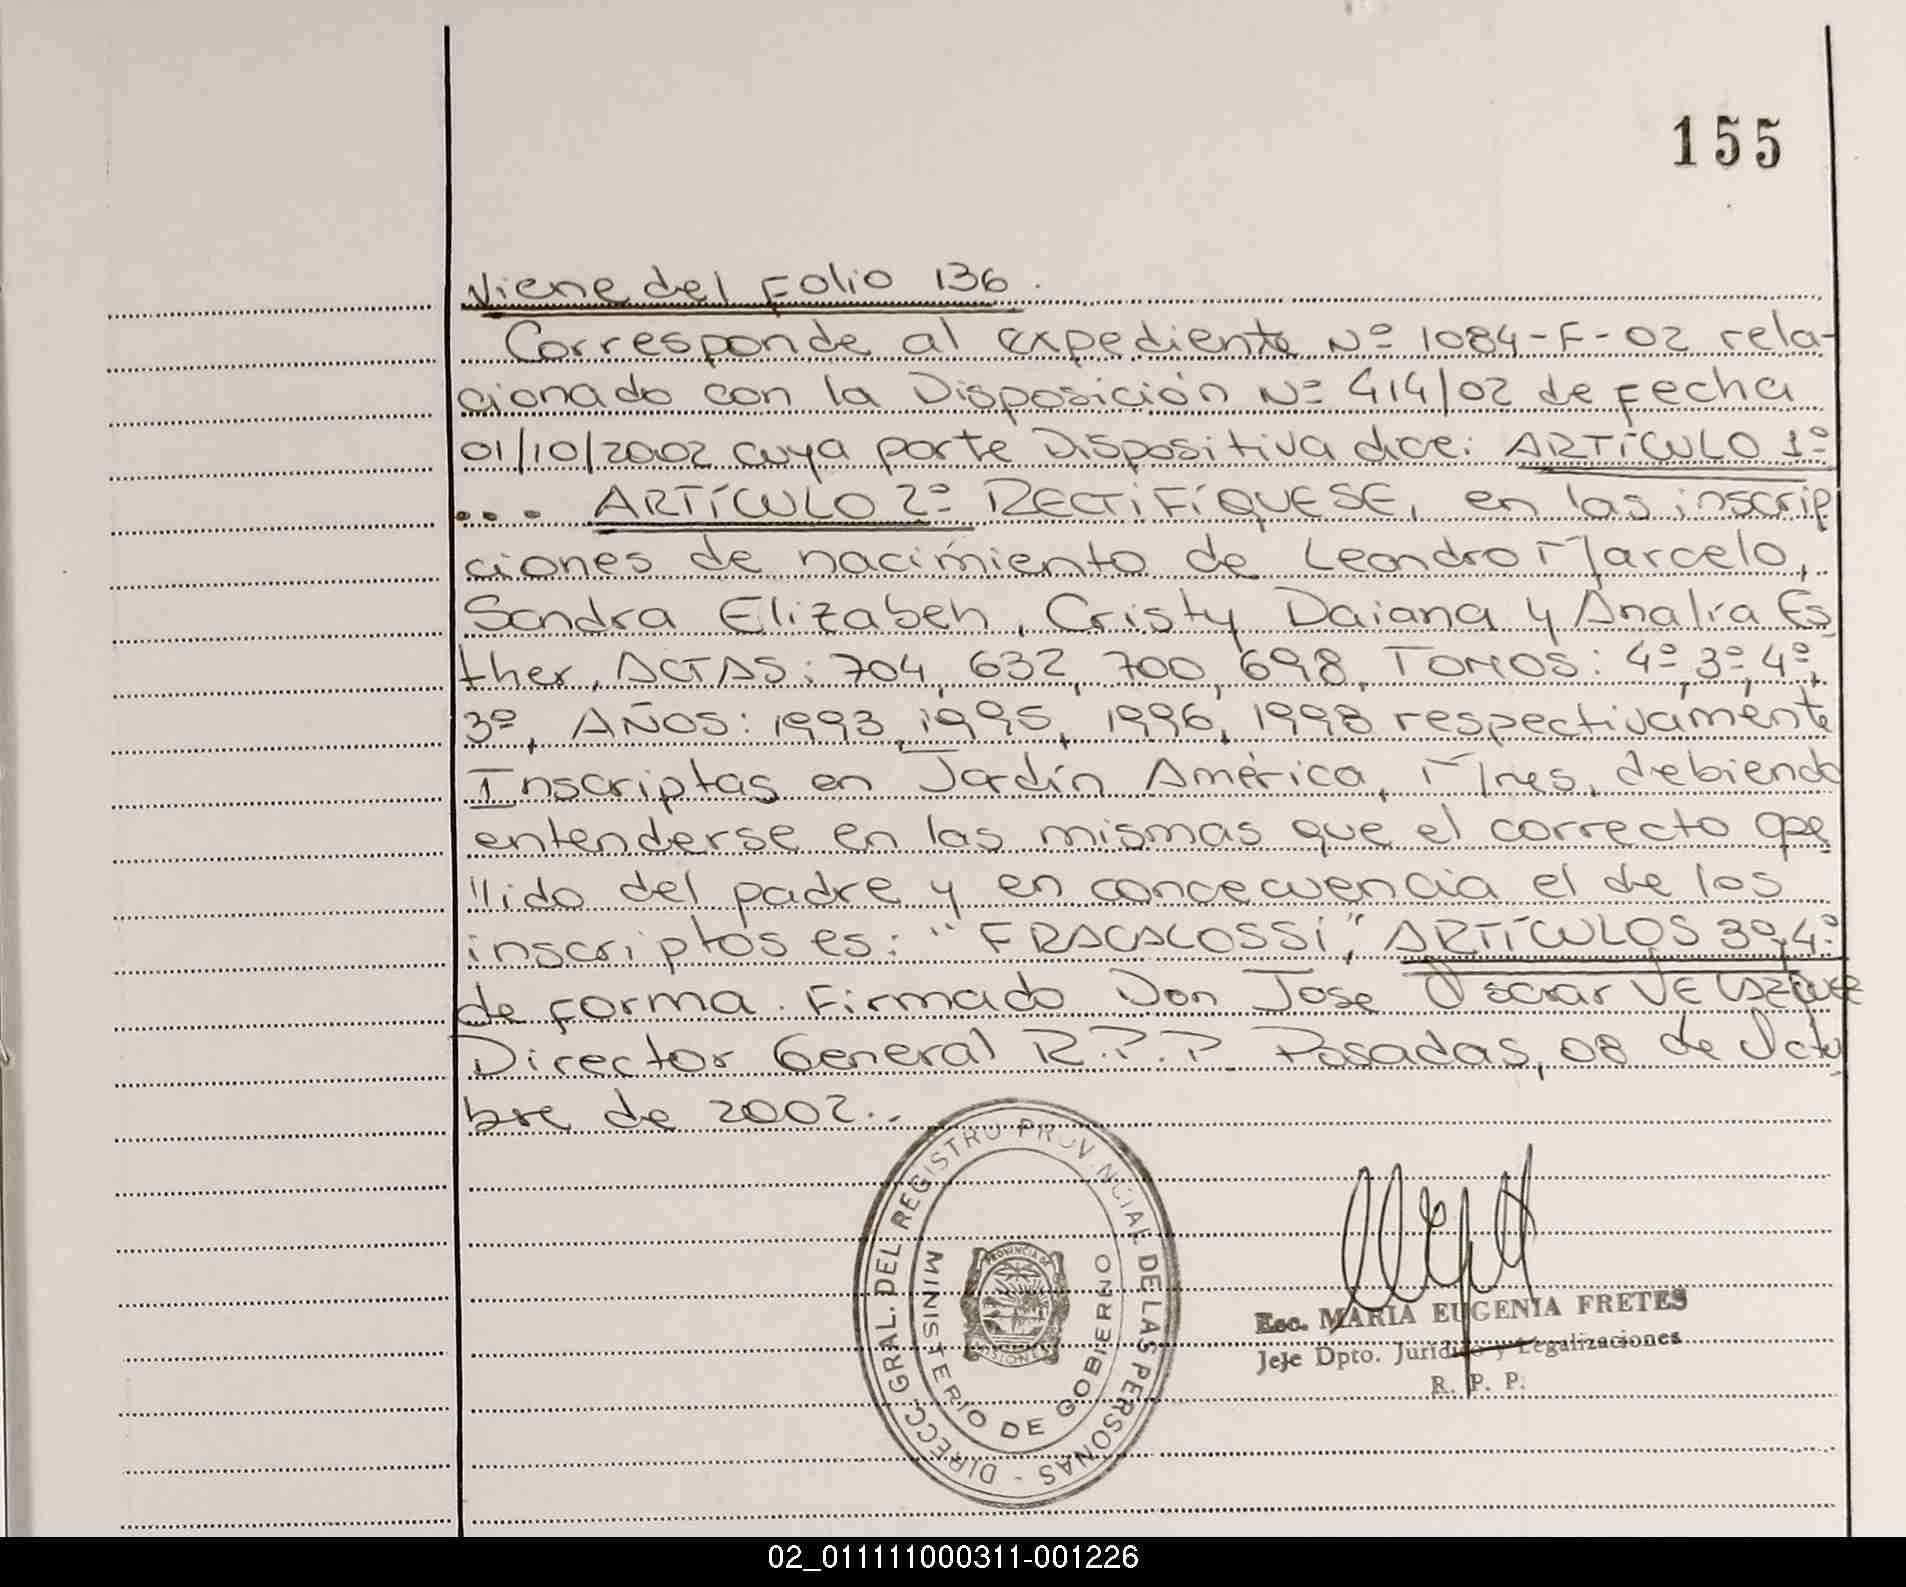 155
Viene del Folio 136.
Corresponde al expediente Nº 1084-F-02 rela-
cionado con la Disposición Nº 414/02 de fecha
01/10/2002 cuya parte Dispositiva dice: ARTÍCULO 1º
... ARTÍCULO 2º RECTIFÍQUESE, en las inscrip
ciones de nacimiento de Leandro Marcelo,
Sandra Elizabeh, Cristy Daiana y Analía Es
ther, ACTAS: 704, 632, 700, 698, TOMOS: 4º, 3º, 4º,
3º, AÑOS: 1993, 1995, 1996, 1998 respectivamente
Inscriptas en Jardín América, Mnes, debiendo
entenderse en las mismas que el correcto ape
llido del padre y en concecuencia el de los
inscriptos es: "FRACALOSSI", ARTÍCULOS 3º, 4º
de forma. Firmado Don Jose Oscar VELAZQUEZ
Director General R.P.P. Posadas, 08 de Octu
bre de 2002..
DIRECC. GRAL. DEL REGISTRO PROVINCIAL DE LAS PERSONAS -
MINISTERIO DE GOBIERNO
PROVINCIA DE
MISIONES
Esc. MARIA EUGENIA FRETES
Jefe Dpto. Jurídico y Legalizaciones
R. P. P.
02_011111000311-001226